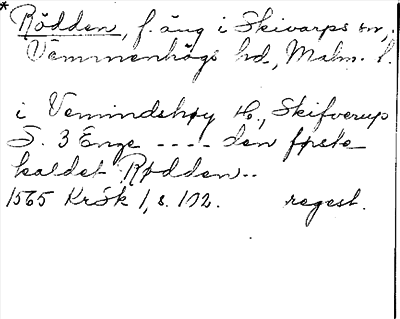 * Rödden, f. äng i Skivarps sn,
Vemmenhögs hd, Malm. l.
i Vemindshøy H., Skifverup
S. 3 Enge ---- den første
kaldet Rødden..
1565 KrSk 1, s. 102. regest.